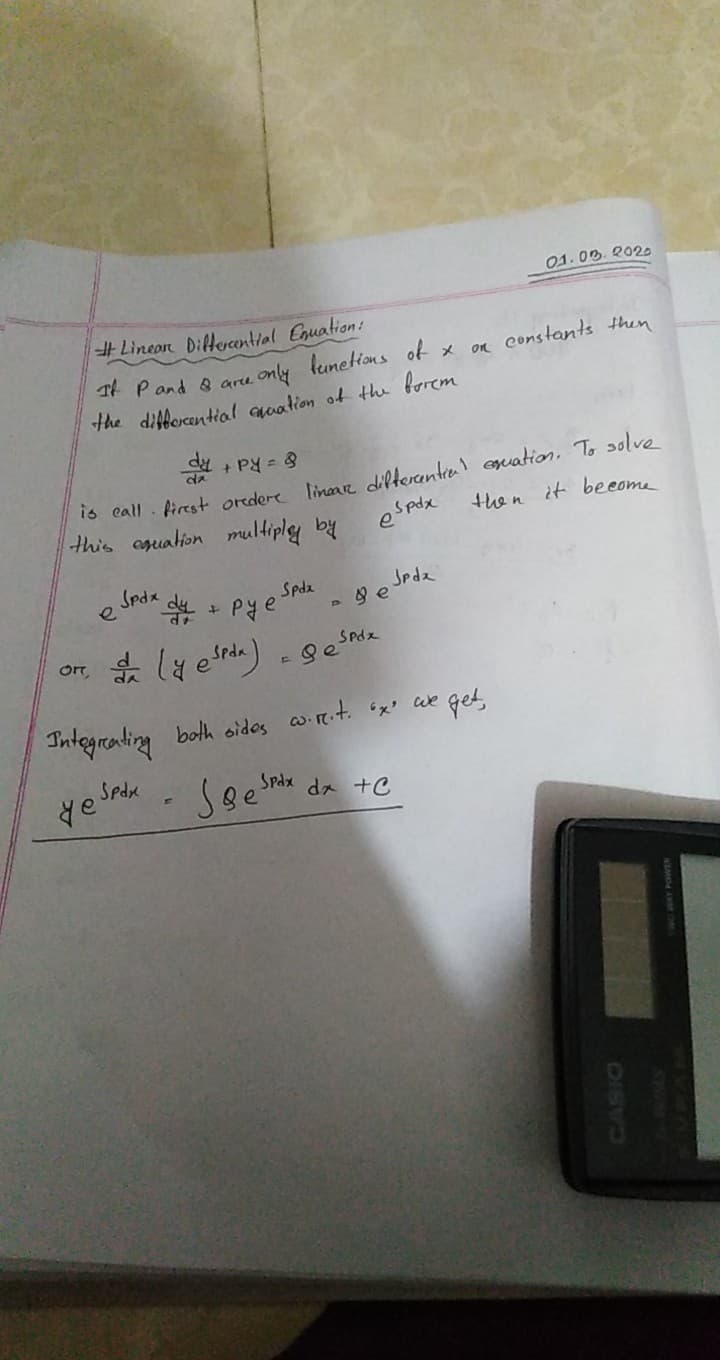 01.03.2020
# Linear Differential Equation:
If P and Q are only functions of x or constants then
the differential equation of the form
dy/dx + Py = Q
is call. first order linear differential equation. To solve
this equation multiply by e^∫pdx then it become
e^∫pdx dy/dx + Pye^∫pdx = Qe^∫pdx
or, d/dx (ye^∫pdx) = Qe^∫pdx
Integrating both sides w.r.t. 'x' we get,
ye^∫pdx = ∫Qe^∫pdx dx + C
TWO WAY POWER
CASIO